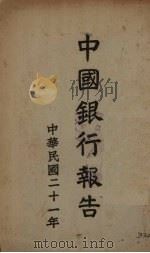 中國銀行報告
中華民國二十一年
www.ertongbook.com